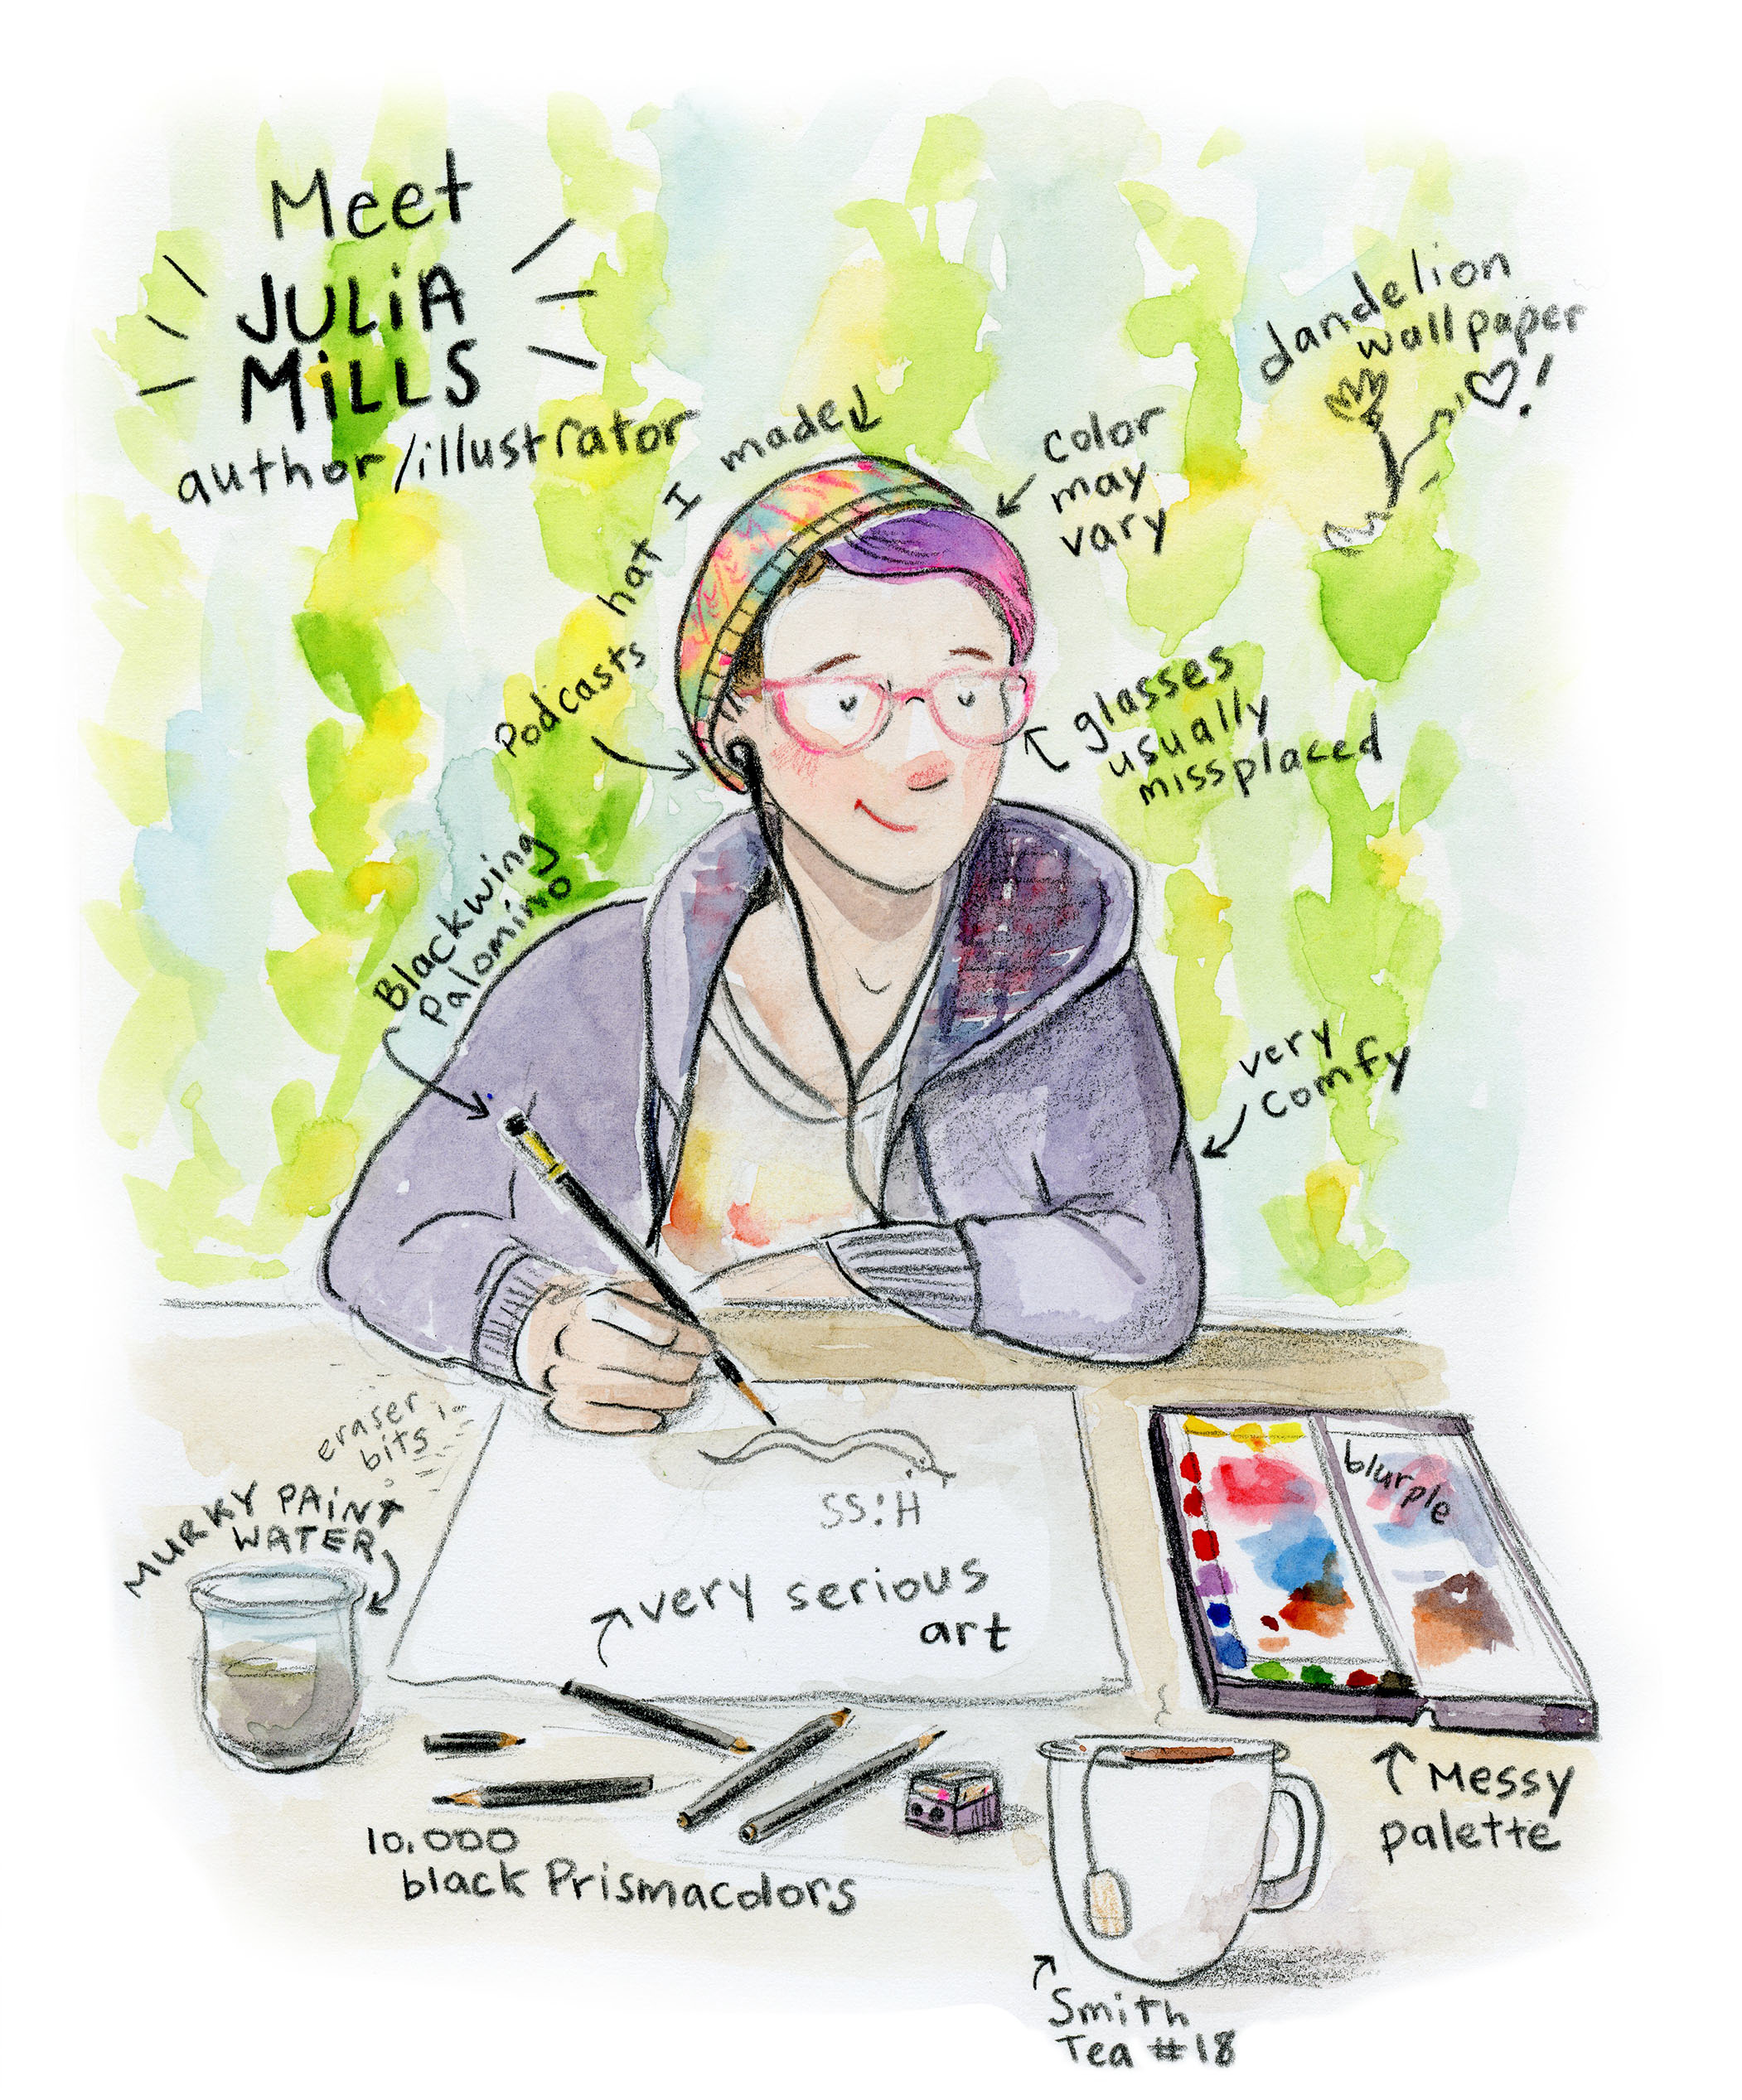 Meet
JULiA
MiLLS
author/illustrator
dandelion
wallpaper
!
hat I made
color
may
vary
Podcasts
glasses
usually
missplaced
Blackwing
Palomino
very
comfy
eraser
bits
MURKY PAiNT
WATER
SS:H
very serious
art
blurple
Messy
palette
10,000
black Prismacolors
Smith
Tea #18